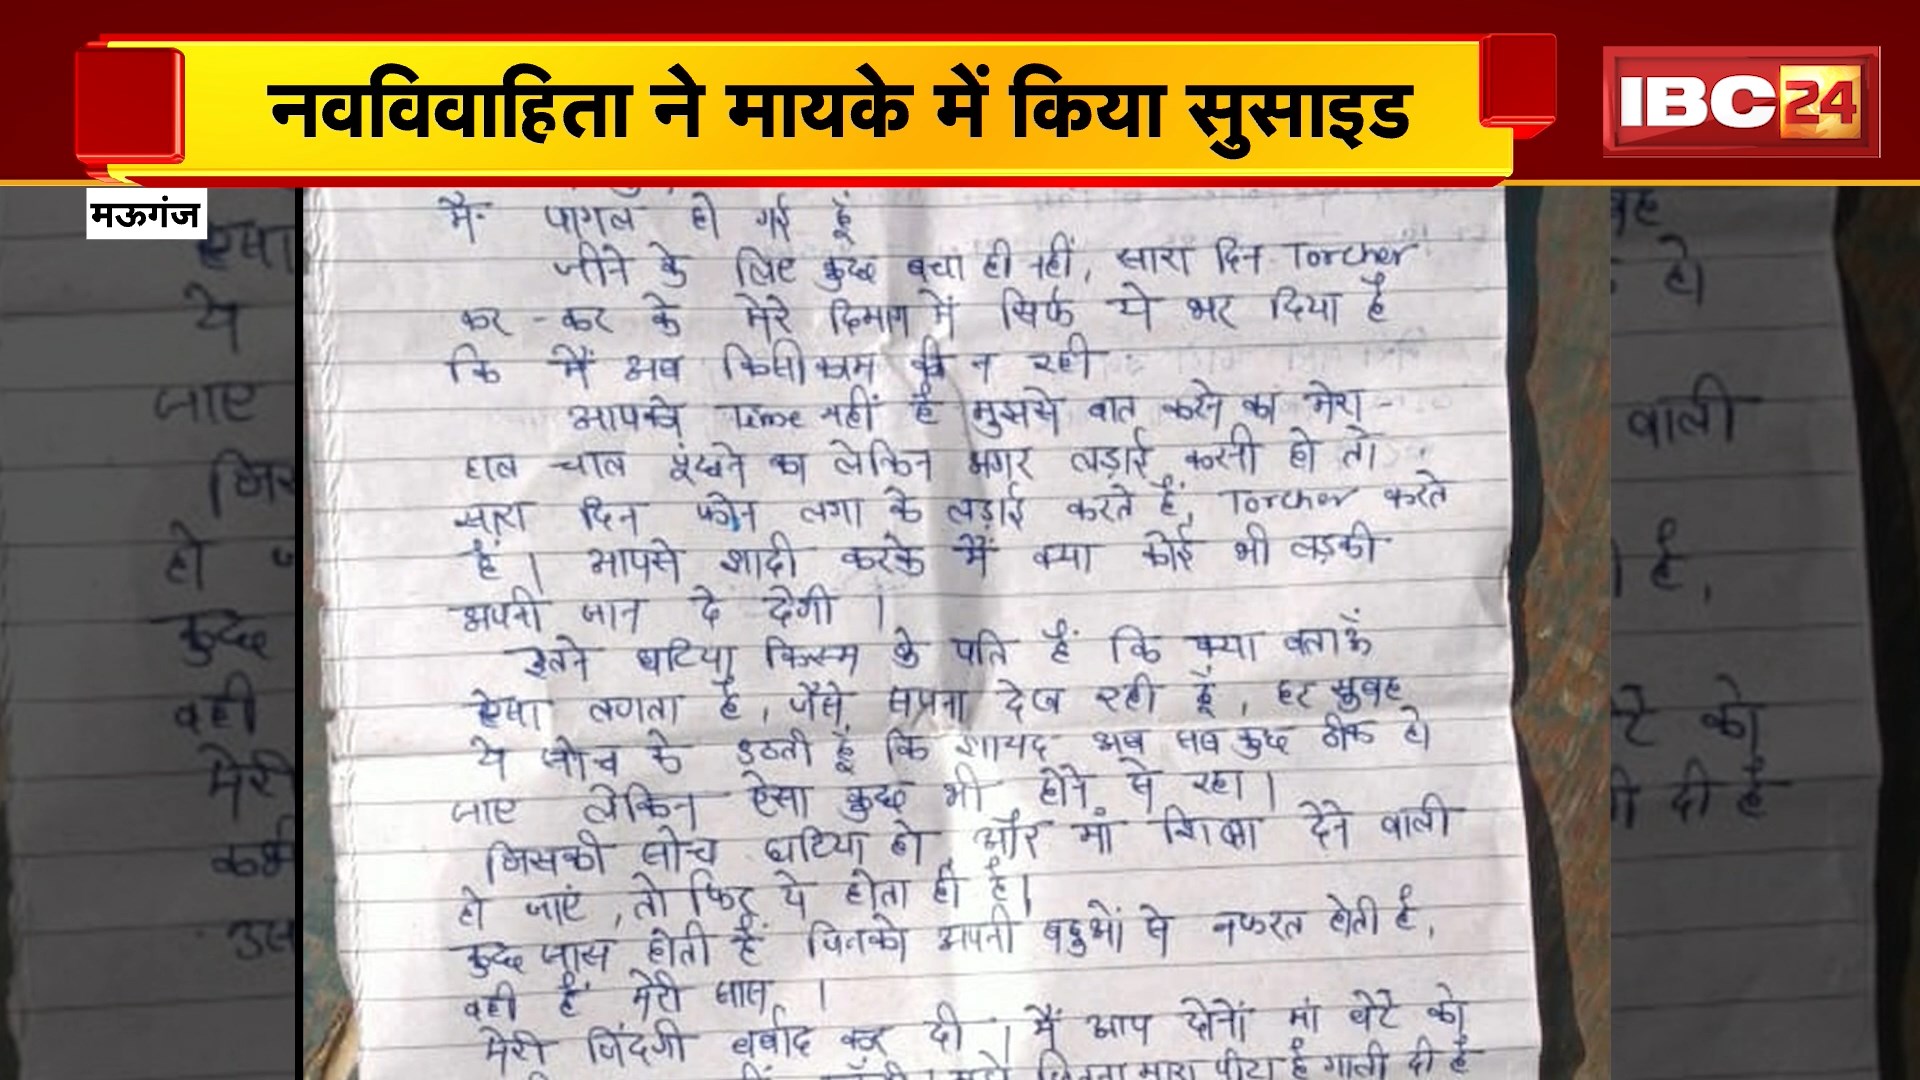 नवविवाहिता ने मायके में किया सुसाइड
IBC24
मऊगंज
मैं पागल हो गई हूँ
जीने के लिए कुछ बचा ही नहीं, सारा दिन Torcher
कर - कर के मेरे दिमाग में सिर्फ ये भर दिया है
कि मैं अब किसी काम की न रही
आपको Time नहीं है मुझसे बात करने का मेरा -
हाल चाल पूंछने का लेकिन अगर लड़ाई करनी हो तो
सारा दिन फोन लगा के लड़ाई करते हैं, Torcher करते
हैं । आपसे शादी करके मैं क्या कोई भी लड़की
अपनी जान दे देगी ।
इतने घटिया किस्म के पति हैं कि क्या बताऊँ
ऐसा लगता है, जैसे सपना देख रही हूँ, हर सुबह
ये सोच के उठती हूँ कि शायद अब सब कुछ ठीक हो
जाए लेकिन ऐसा कुछ भी होने से रहा ।
जिसकी सोच घटिया हो और मां शिक्षा देने वाली
हो जाएं, तो फिर ये होता ही है।
कुछ सास होती हैं जिनको अपनी बहुओं से नफरत होती है,
वही हैं मेरी सास ।
मेरी जिंदगी बर्बाद कर दी । मैं आप दोनों मां बेटे को
मारा पीटा है गाली दी है